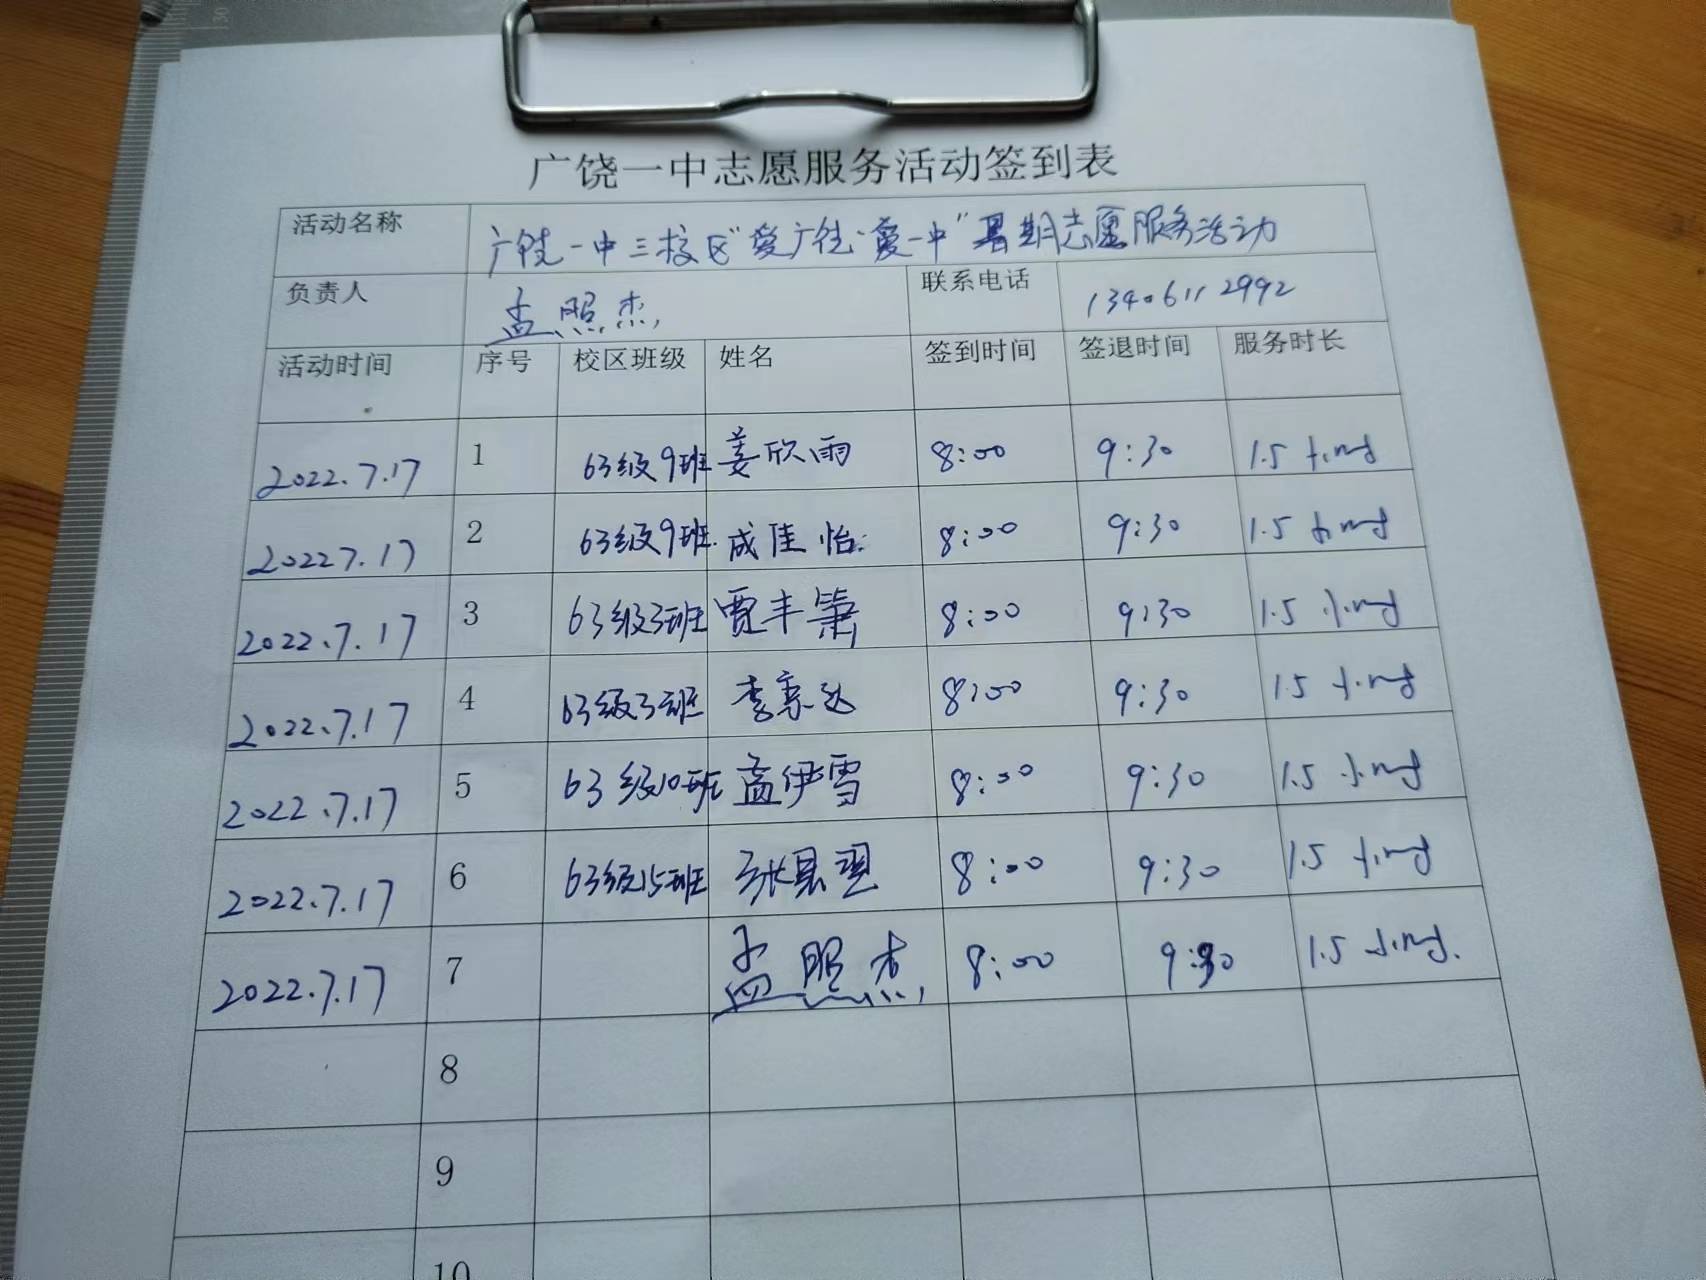 广饶一中志愿服务活动签到表
活动名称 广饶一中三校区"爱广饶·爱一中"暑期志愿服务活动
负责人 孟照杰 联系电话 13406112992
活动时间 序号 校区班级 姓名 签到时间 签退时间 服务时长
2022.7.17 1 63级9班 姜欣雨 8:00 9:30 1.5
2022.7.17 2 63级9班 成佳怡 8:00 9:30 1.5
2022.7.17 3 63级3班 贾丰箫 8:00 9:30 1.5
2022.7.17 4 63级3班 李 8:00 9:30 1.5
2022.7.17 5 63级10班 孟伊雪 8:00 9:30 1.5
2022.7.17 6 63级15班 张 8:00 9:30 1.5
2022.7.17 7 孟照杰 8:00 9:30 1.5
8
9
10